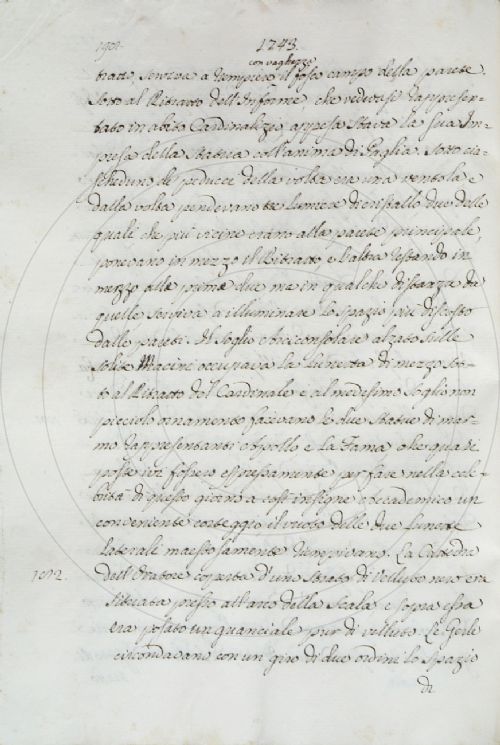 1243.
con vaghezza
tratto, serviva a riempiere il fosco campo della parete.
Sotto al Ritratto dell'Infarine, che vedevasi rappresen-
tato in abito Cardinalizio, appesa stava la sua Im-
presa della Statua coll'anima di Paglia. Sotto cia-
scheduno de' peducci della volta era una ventola e
dalla volta pendevano tre lumiere di cristallo due delle
quali che più vicine erano alla parete principale,
ponevano in mezzo il Ritratto, e l'altra restando in
mezzo alle prime due ma in qualche distanza da
quelle serviva a illuminare lo spazio più discosto
dalle pareti. Il Soglio Arciconsolare alzato sulle
solite Macini occupava la Lunetta di mezzo sot-
to al Ritratto del Cardinale e al medesimo Soglio non
picciolo ornamento facevano le due Statue di mar-
mo rappresentanti Apollo e la Fama, che quasi
poste ivi fossero espressamente per fare nella cele-
brità di questo giorno a così insigne Accademico un
conveniente corteggio il vuoto delle due Lunette
laterali maestosamente riempivano. La Cattedra
1092.
dell'Oratore coperta d'uno strato di Velluto nero era
situata presso all'arco della Scala e sopra essa
era posato un guanciale pur di velluto. Le Gerle
circondavano con un giro di due ordini lo spazio
di